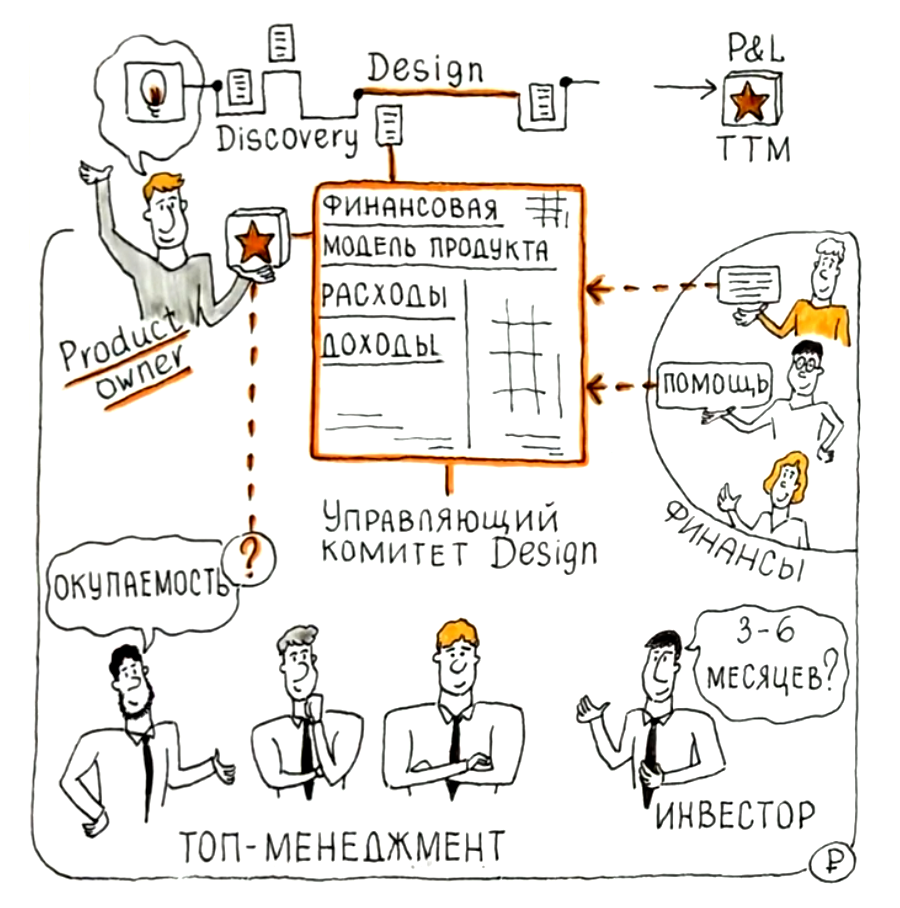 Design
P&L
Discovery
TTM
ФИНАНСОВАЯ
МОДЕЛЬ ПРОДУКТА
РАСХОДЫ
ДОХОДЫ
Product
owner
ПОМОЩЬ
ФИНАНСЫ
УПРАВЛЯЮЩИЙ
КОМИТЕТ Design
?
ОКУПАЕМОСТЬ
3-6
МЕСЯЦЕВ?
ТОП-МЕНЕДЖМЕНТ
ИНВЕСТОР
₽